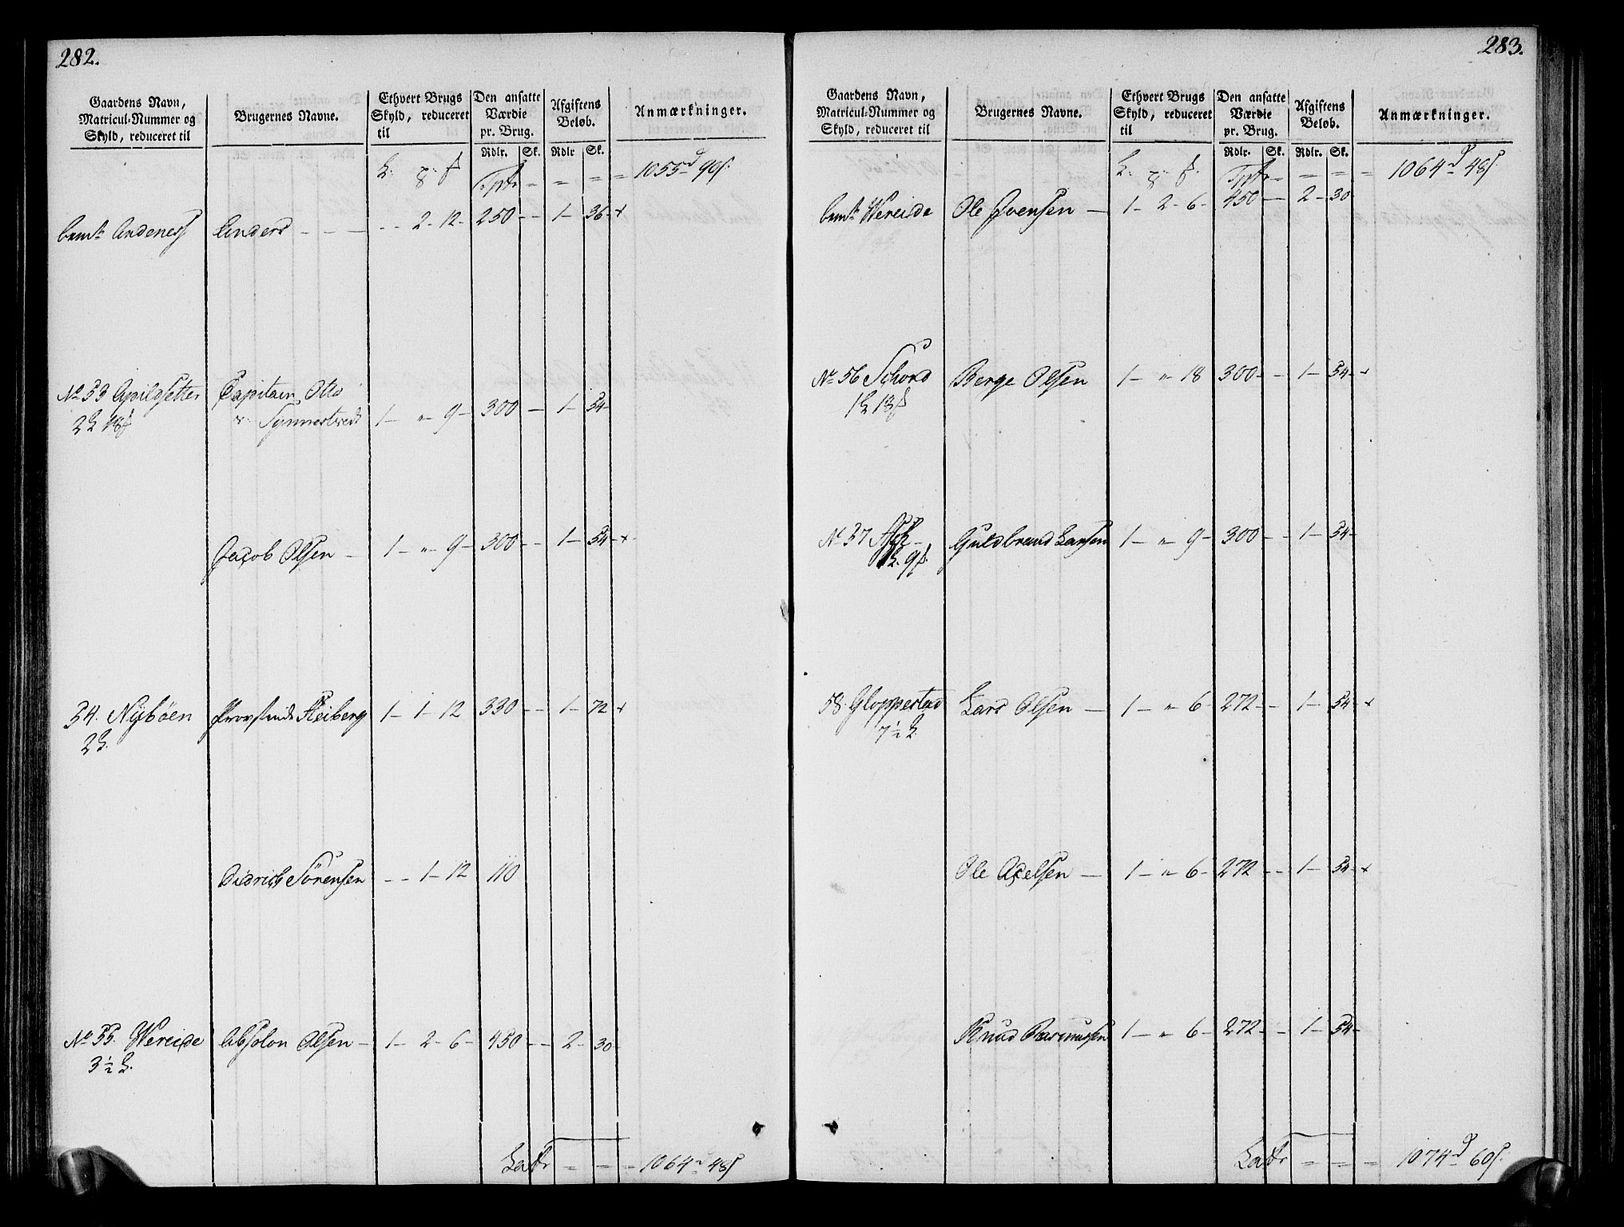 282.
Gaardens Navn, Matricul-Nummer og Skyld, reduceret til
Brugernes Navne.
Ethvert Brugs Skyld, reduceret til
Den ansatte Værdie pr. Brug.
Afgiftens Beløb.
Anmærkninger.
Rdlr. Sk. Rdlr Sk.
1055 90
Andenes Anders - - - - - 2 - 12 - 250 - - 1 - 36 +
No 53 Apildsetter Capitain Otto
2 18 1 - " 9 - 300 - 1 - 54 -
Jacob Olsen - 1 - " 9 - 300 - - 1 - 54 - +
54. Nybøen Heiberg 1 - 1 - 12 330 - - 1 - 72 +
2
Didrich Sörensen - - 1 - 12 110
No 55 Wereide Absolon Olsen - 1 - 2 - 6 - 450 - - 2 - 30 -
3 ½
Latr = = = 1064 48
283.
Gaardens Navn, Matricul-Nummer og Skyld, reduceret til
Brugernes Navne.
Ethvert Brugs Skyld, reduceret til
Den ansatte Værdie pr. Brug.
Afgiftens Beløb.
Anmærkninger.
Rdlr. Sk. Rdlr. Sk.
1064 48
Wereide Ole Ivensen - 1 - 2 - 6 - 450 - - 2 - 30
No 56 Schord Berge Olsen 1 - " 18 300 - - 1 - 54 - +
1 18
No 57 Guldbrand Larsen 1 - " 9 - 300 - - 1 - 54 -
9
58 Gloppestad Lars Olsen - 1 - " 6 - 272 - - 1 - 54 - +
7 ½
Ole Axelsen - 1 - " 6 - 272 - - 1 - 54 - +
Knud Rasmussen 1 - " 6 - 272 - - 1 - 54 -
Latr = = = 1074 60